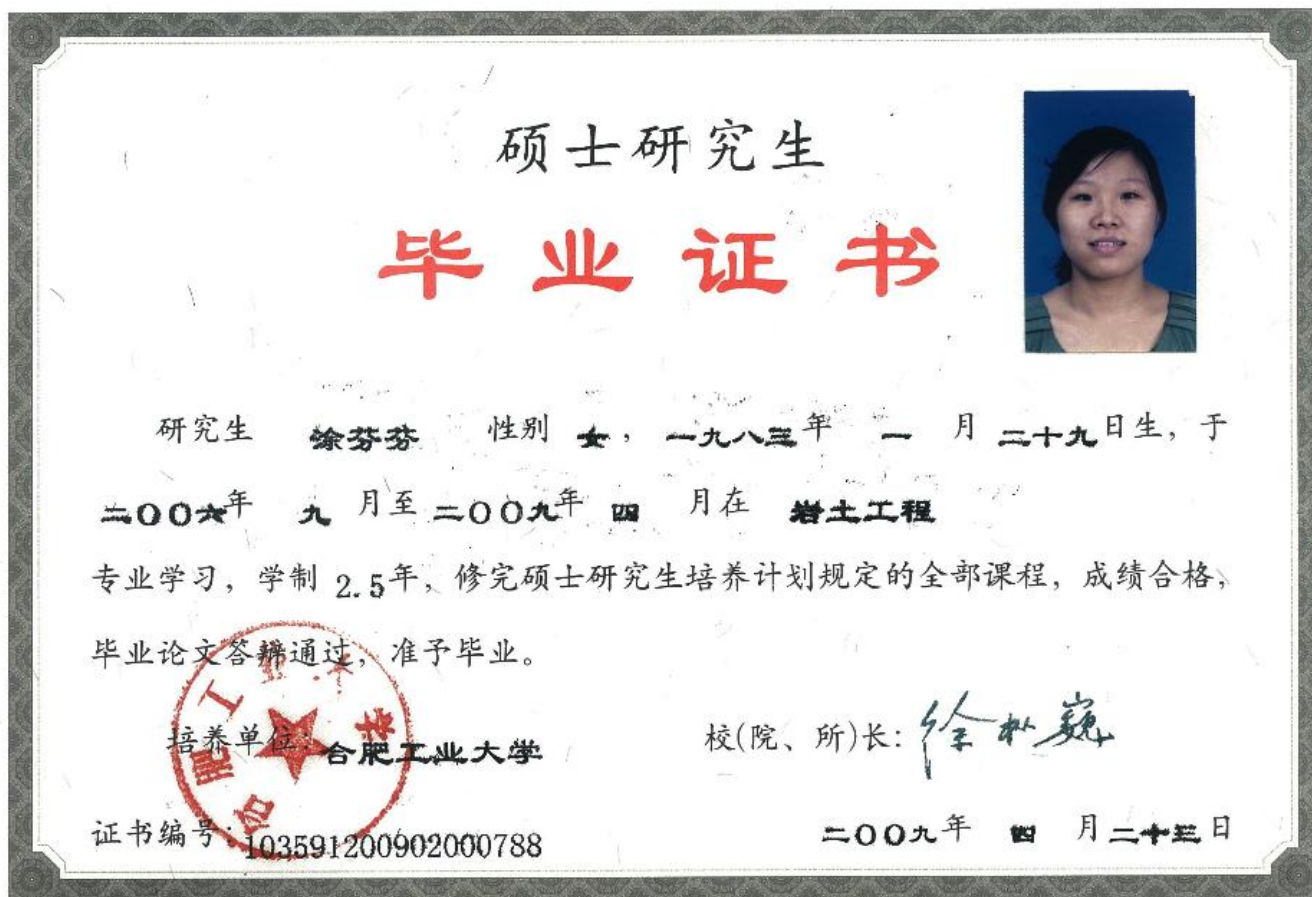 硕士研究生
毕业证书
研究生 涂芬芬 性别 女，一九八三年 一 月 二十九日生，于
二〇〇六年 九 月至二〇〇九年 四 月在 岩土工程
专业学习，学制 2.5年，修完硕士研究生培养计划规定的全部课程，成绩合格，
毕业论文答辩通过，准予毕业。
培养单位：合肥工业大学
校(院、所)长：徐枞巍
证书编号：103591200902000788
二〇〇九年 四 月二十三日
合肥工业大学